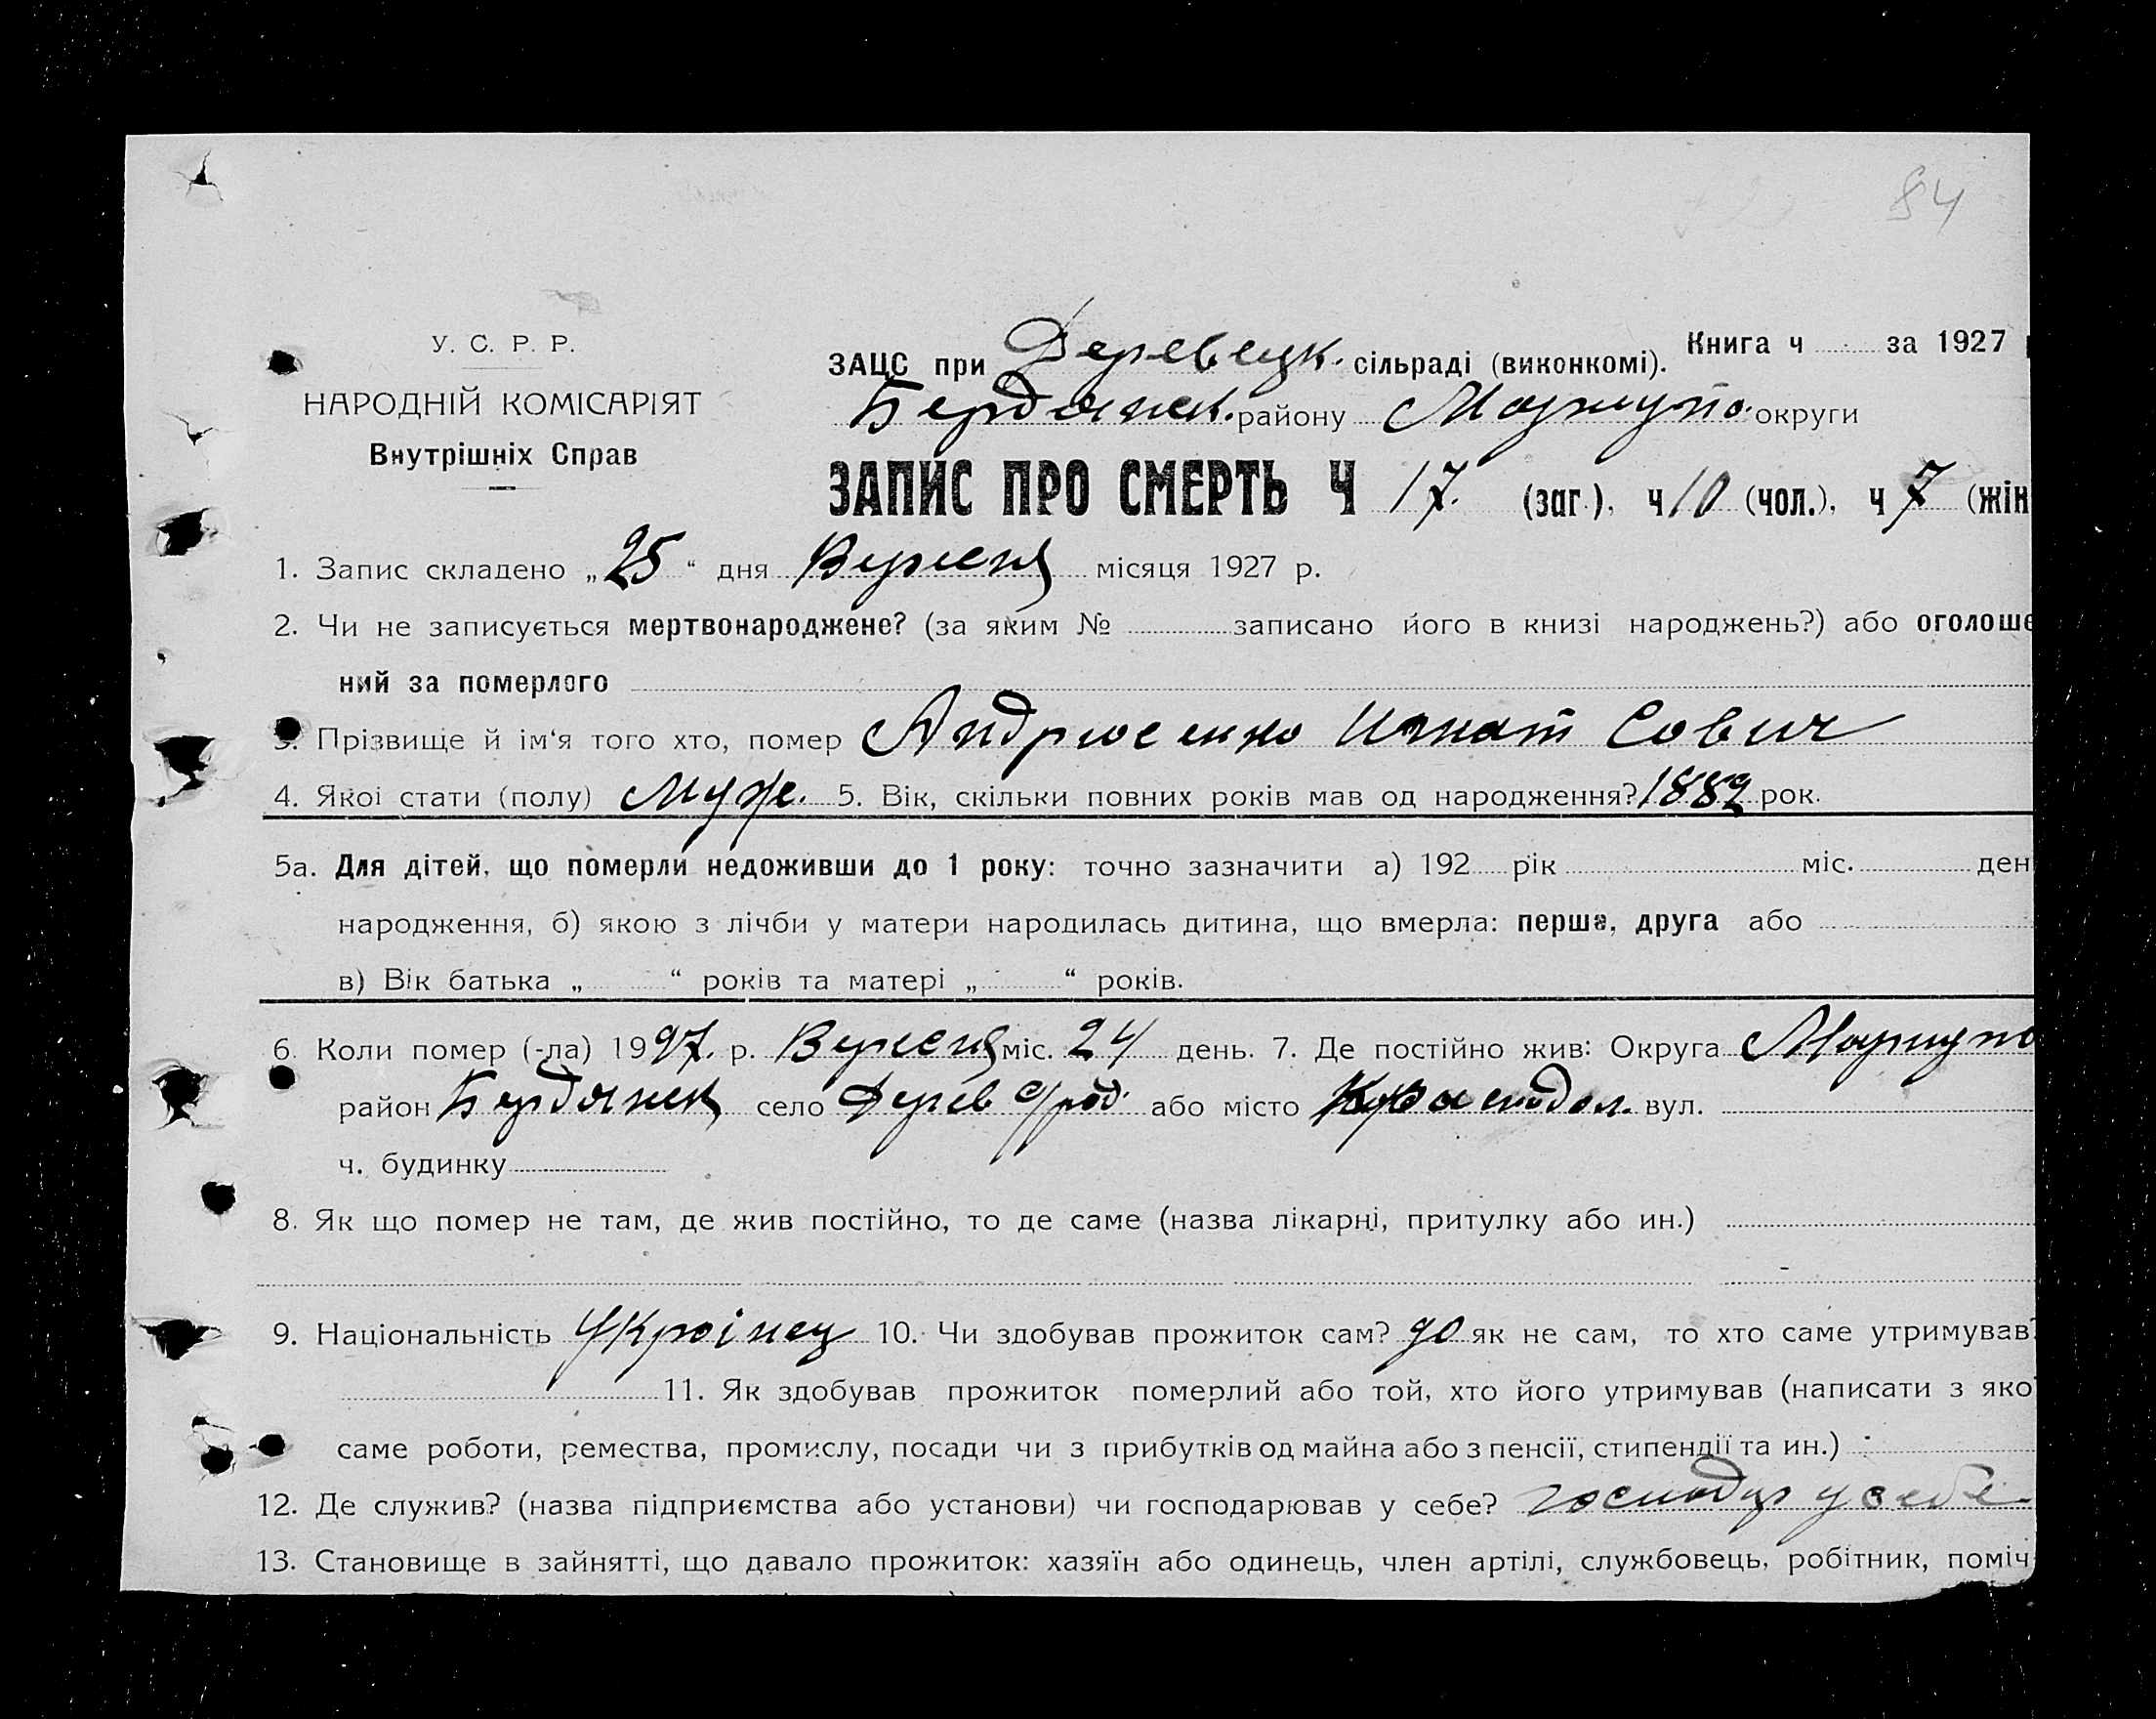 84
У. С. Р. Р.
НАРОДНІЙ КОМІСАРІЯТ
Внутрішніх Справ
Книга ч за 1927
ЗАЦС при Деревецк. сільраді (виконкомі).
Бердянск. району Мариупо. округи
ЗАПИС ПРО СМЕРТЬ Ч 17. (заг.), ч 10 (чол.), ч 7 (жін
1. Запис складено „25“ дня Вересня місяця 1927 р.
2. Чи не записується мертвонароджене? (за яким № записано його в книзі народжень?) або оголоше
ний за померлого
3. Прізвище й ім'я того хто, помер Андрюсенко Игнат Сович
4. Якої стати (полу) Муже. 5. Вік, скільки повних років мав од народження? 1882 рок.
5а. Для дітей, що померли недоживши до 1 року: точно зазначити а) 192 рік міс. ден
народження, б) якою з лічби у матери народилась дитина, що вмерла: перша, друга або
в) Вік батька „ “ років та матері „ “ років.
6. Коли помер (-ла) 1927. р. Вересня міс. 24 день. 7. Де постійно жив: Округа Мариупо
район Бердянск село Дерев с/рад. або місто вул.
ч. будинку
8. Як що помер не там, де жив постійно, то де саме (назва лікарні, притулку або ин.)
9. Національність Украінец 10. Чи здобував прожиток сам? да як не сам, то хто саме утримував?
11. Як здобував прожиток померлий або той, хто його утримував (написати з якої
саме роботи, ремества, промислу, посади чи з прибутків од майна або з пенсії, стипендії та ин.)
12. Де служив? (назва підприємства або установи) чи господарював у себе? господар у себе
13. Становище в зайнятті, що давало прожиток: хазяїн або одинець, член артілі, службовець, робітник, поміч